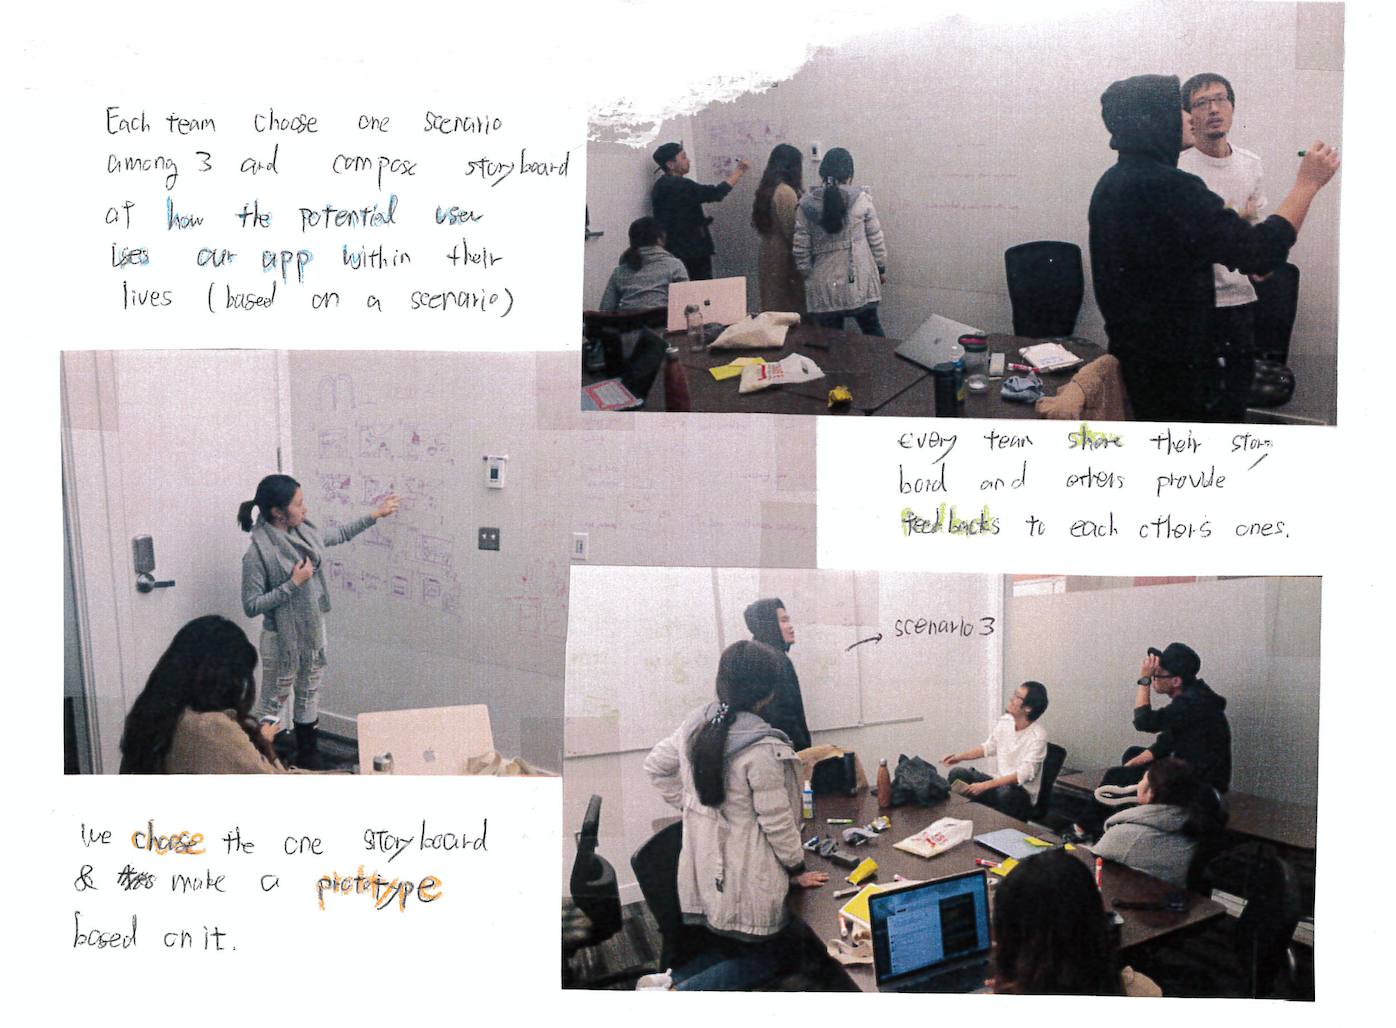 Each team choose one scenario
among 3 and compose storyboard
of how the potential user
uses our app within their
lives (based on a scenario)
Every team share their story
bord and others provide
feedbacks to each other's ones.
scenario 3
We choose the one storyboard
& make a prototype
based on it.